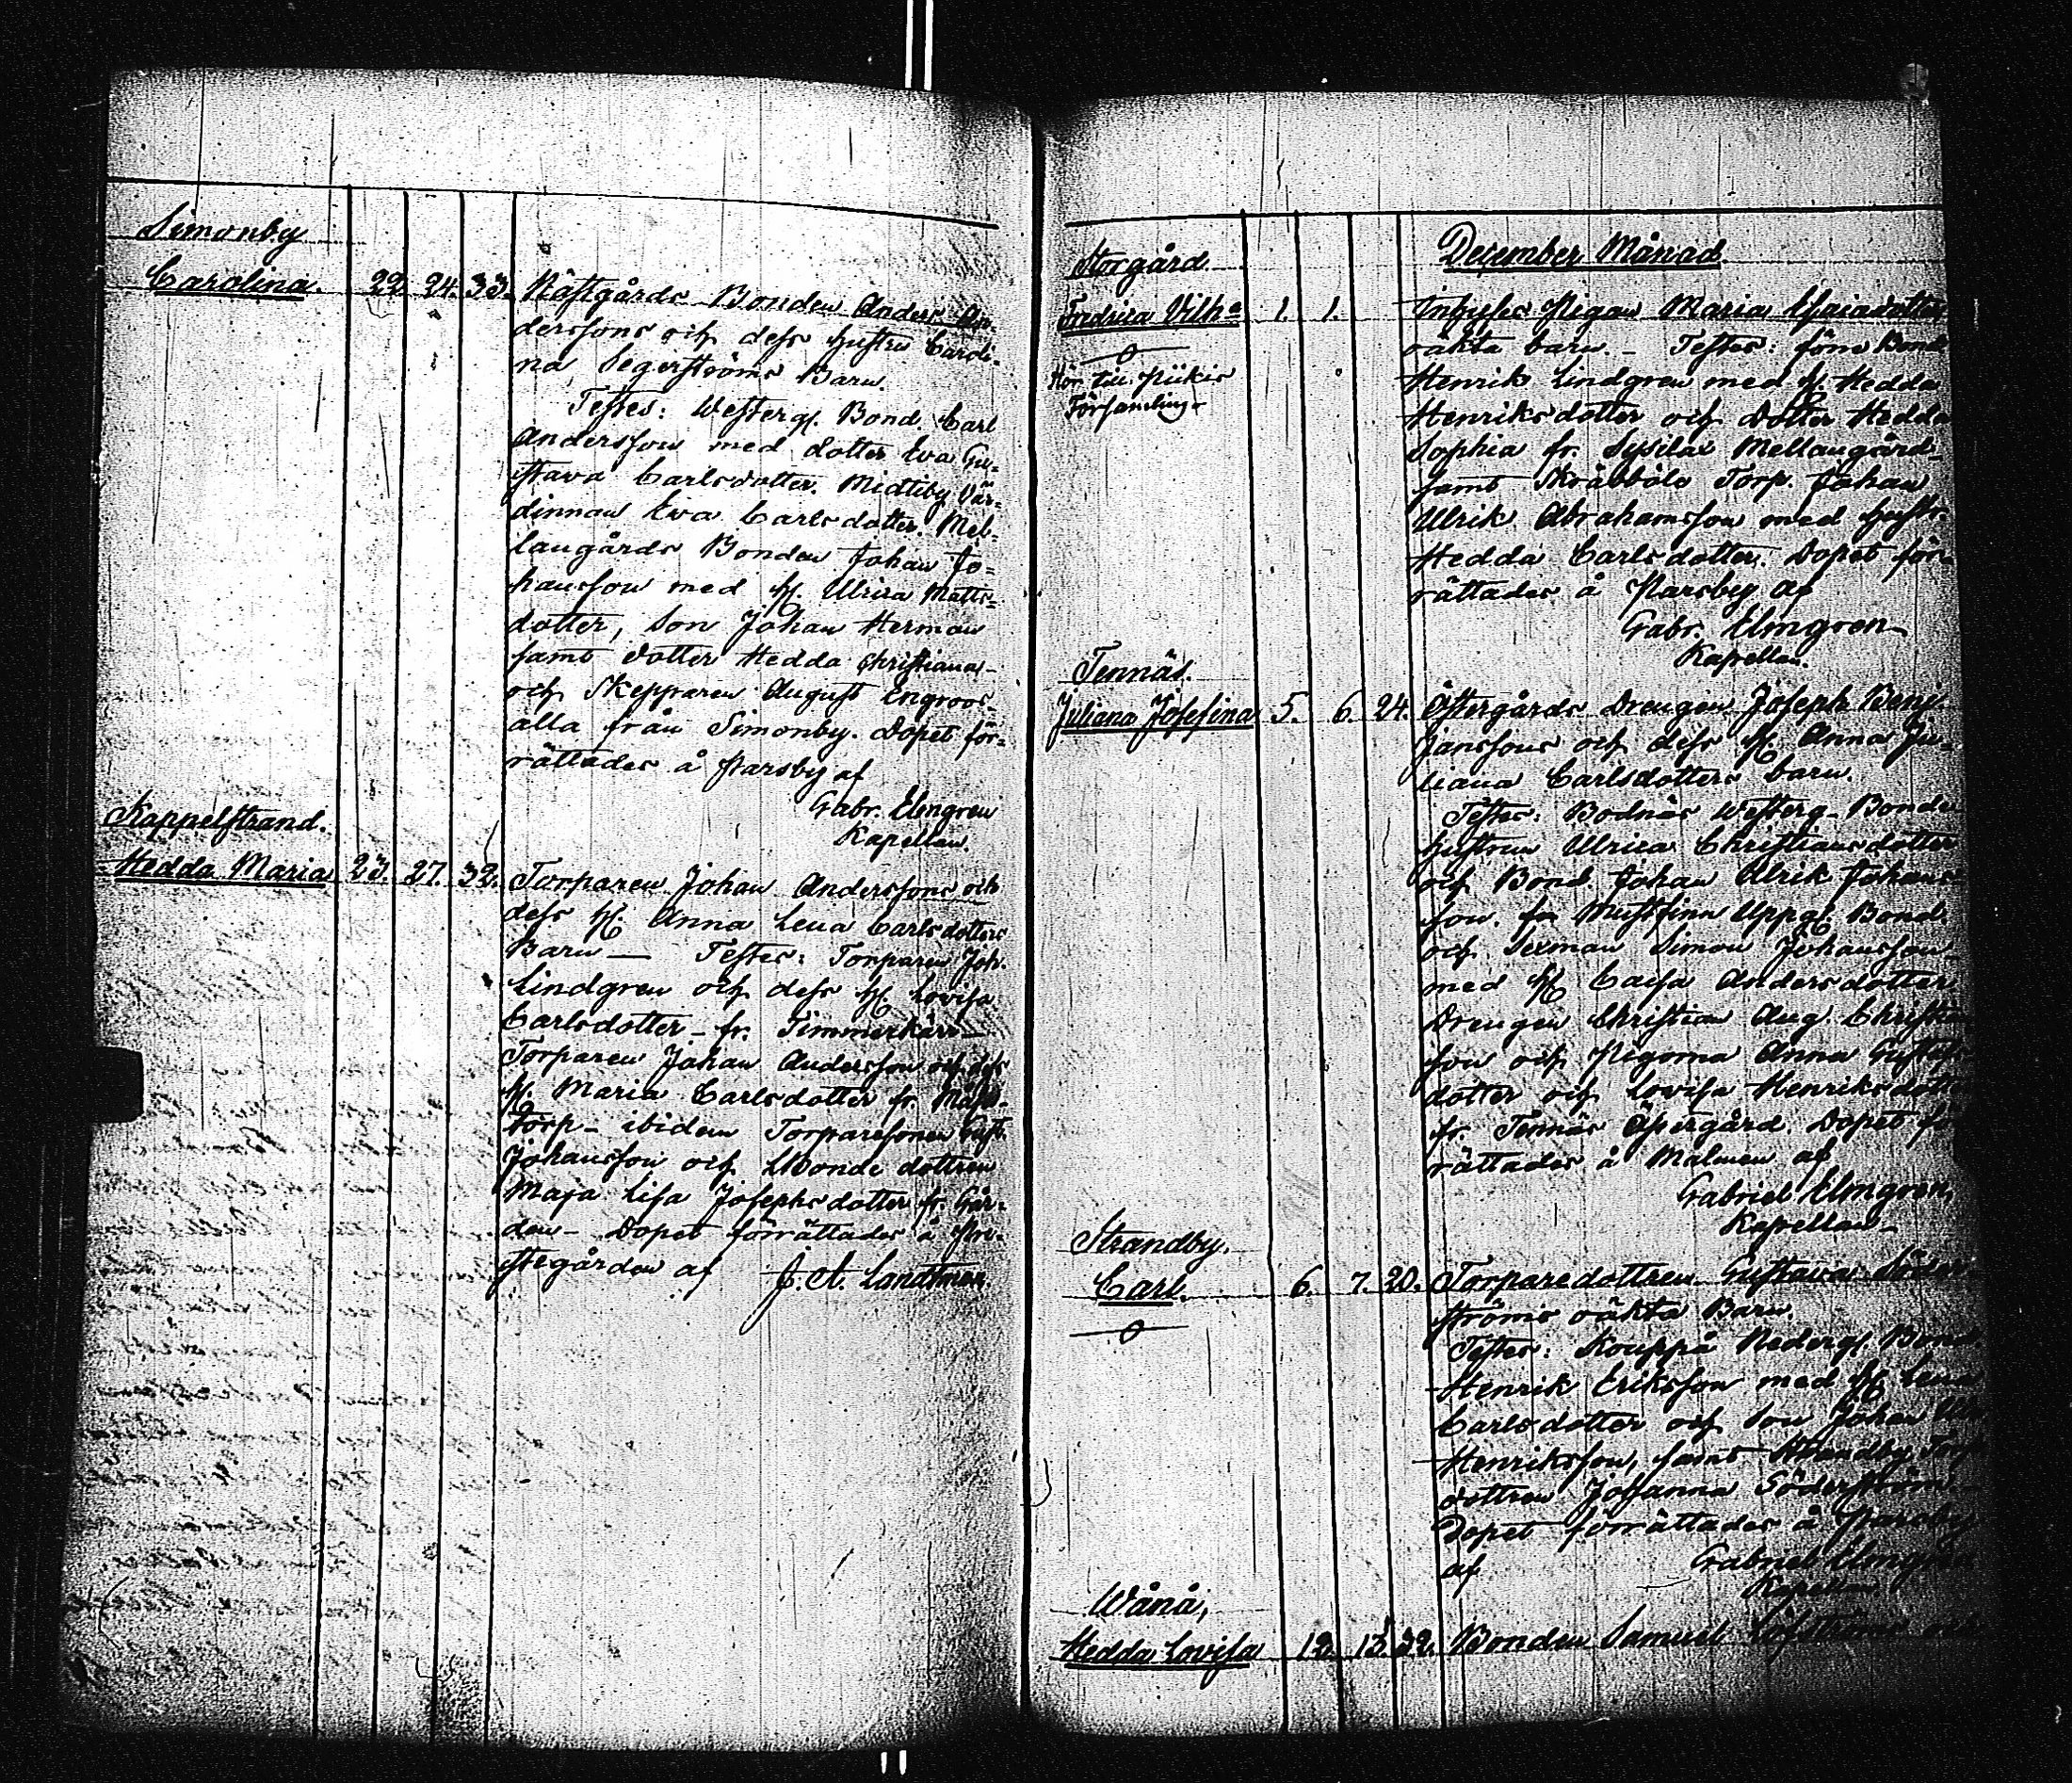 Simonby
Carolina. 22. 24. 33. Nästgårds Bonden Anders An-
derssons och dess hustru Caroli-
na Segerströms Barn.
Testes: Westerg. Bond. Carl
Andersson med dotter Eva Gu-
stava Carlsdotter. Midtiby Vär-
dinnan Eva Carlsdotter. Mel-
langårds Bonden Johan Jo-
hansson med H. Ulrica Matts-
dotter, Son Johan Herman
samt dotter Hedda Christiana
och Skepparen August Engroos
alla från Simonby. Dopet för-
rättades å Parsby af
Gabr. Elmgren
Kapellan.
Kappelstrand.
Hedda Maria 23. 27. 32. Torparen Johan Anderssons och
dess H. Anna Lena Carlsdotters
Barn — Testes: Torparen Joh.
Lindgren och dess H. Lovisa
Carlsdotter - fr. Timmerkärr -
Torparen Johan Andersson och dess
H. Maria Carlsdotter fr.
torp - ibidem Torparesonen Gust.
Johansson och Bonde dottren
Maja Lisa Josephsdotter fr. Går-
den - Dopet förrättades å Pre-
stegården af J. A. Landtman
December Månad.
Storgård.
Fredrica Vilha 1. 1. Inhyses Pigan Maria Esaiædotters
oäkta barn. - Testes: förra Bond
Henrik Lindgren med H. Hedda
Henriksdotter och dotter Hedda
Sophia fr. Sysilax Mellangård
samt Skräbböle Torp. Johan
Ulrik Abrahamsson med hustr.
Hedda Carlsdotter. Dopet för-
rättades å Parsby af
Gabr. Elmgren
Kapellan.
Hör till Piikis
Församling
Tennäs.
Juliana Josefina 5. 6. 24. Östergårds Drengen Joseph Benj
janssons och dess H. Anna Ju-
liana Carlsdotters barn.
Testes: Bodnäs Westerg. Bonde
hustrun Ulrica Christiansdotter
och Bond. Johan Ulrik Johans
son. fr Mustfinn Uppg. Bond.
och Sexman Simon Johansson
med H. Caisa Andersdotter
Drengen Christian Aug. Christian
son och Pigorna Anna Gustafs
dotter och Lovisa Henriksdotter
fr. Tennäs Östergård. Dopet fö
rättades å Malmen af
Gabriel Elmgren,
Kapellan
Strandby.
Carl. 6. 7. 20. Torparedottren Gustava Söder
ströms oäkta Barn.
Testes: Kouppä Nederg. Bond.
Henrik Eriksson med H. Lena
Carlsdotter och Son Johan
Henriksson, samt Strandby Torp
dottren Johanna Söderström
Dopet förrättades å Parsby
af Gabriel Elmgren
Kapellan
Wånå,
Hedda Lovisa 12. 13. 32. Bonden Samuel Löfströms och